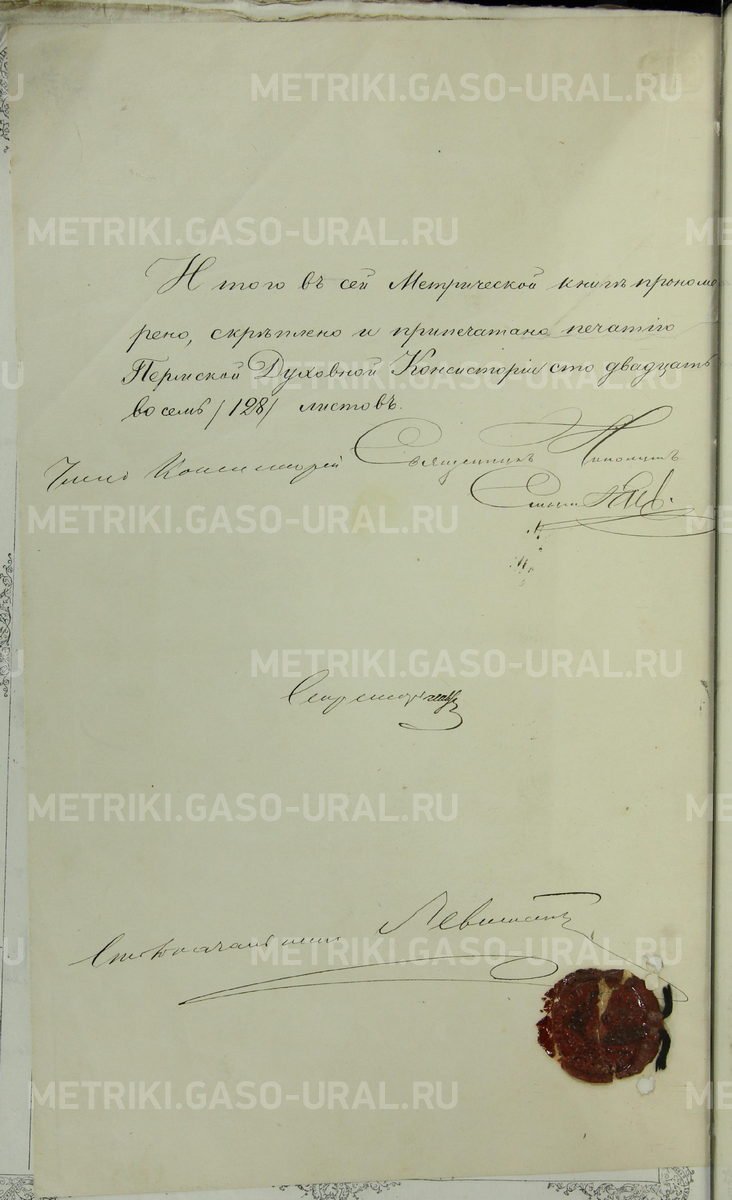 Итого въ сей Метрической книгѣ прономе
рено, скрѣплено и припечатано печатію
Пермской Духовной Консисторіи сто двадцать
восемь /128/ листовъ.
Членъ Консисторіи Священникъ Ипполитъ
Секретарь
Столоначальникъ Левитскій
METRIKI.GASO-URAL.RU
METRIKI.GASO-URAL.RU
METRIKI.GASO-URAL.RU
METRIKI.GASO-URAL.RU
METRIKI.GASO-URAL.RU
METRIKI.GASO-URAL.RU
METRIKI.GASO-URAL.RU
METRIKI.GASO-URAL.RU